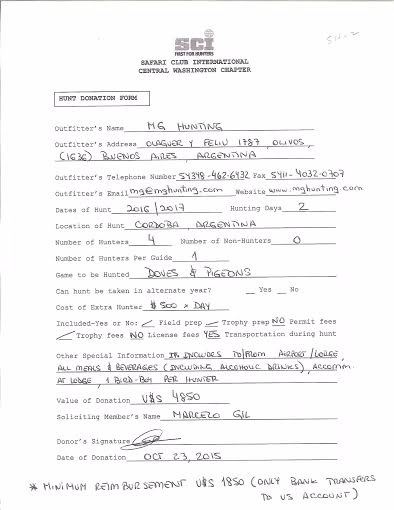 SCI
FIRST FOR HUNTERS
SAFARI CLUB INTERNATIONAL
CENTRAL WASHINGTON CHAPTER
HUNT DONATION FORM
Outfitter's Name MG HUNTING
Outfitter's Address OLAGUER Y FELIU 1787, OLIVOS,
(1636) BUENOS AIRES, ARGENTINA
Outfitter's Telephone Number 54348-462-6432 Fax 5411-4032-0707
Outfitter's Email mg@mghunting.com Website www.mghunting.com
Dates of Hunt 2016/2017 Hunting Days 2
Location of Hunt CORDOBA, ARGENTINA
Number of Hunters 4 Number of Non-Hunters 0
Number of Hunters Per Guide 1
Game to be Hunted DOVES & PIGEONS
Can hunt be taken in alternate year? Yes No
Cost of Extra Hunter $ 500 x DAY
Included-Yes or No: Field prep Trophy prep NO Permit fees
Trophy fees NO License fees YES Transportation during hunt
Other Special Information IT INCLUDES TO/FROM AIRPORT/LODGE,
ALL MEALS & BEVERAGES (INCLUDING ALCOHOLIC DRINKS), ACCOMM.
AT LODGE, 1 BIRD-BOY PER HUNTER
Value of Donation U$S 4850
Soliciting Member's Name MARCELO GIL
Donor's Signature
Date of Donation OCT 23, 2015
* MINIMUM REIMBURSEMENT U$S 1850 (ONLY BANK TRANSFERS
TO US ACCOUNT)